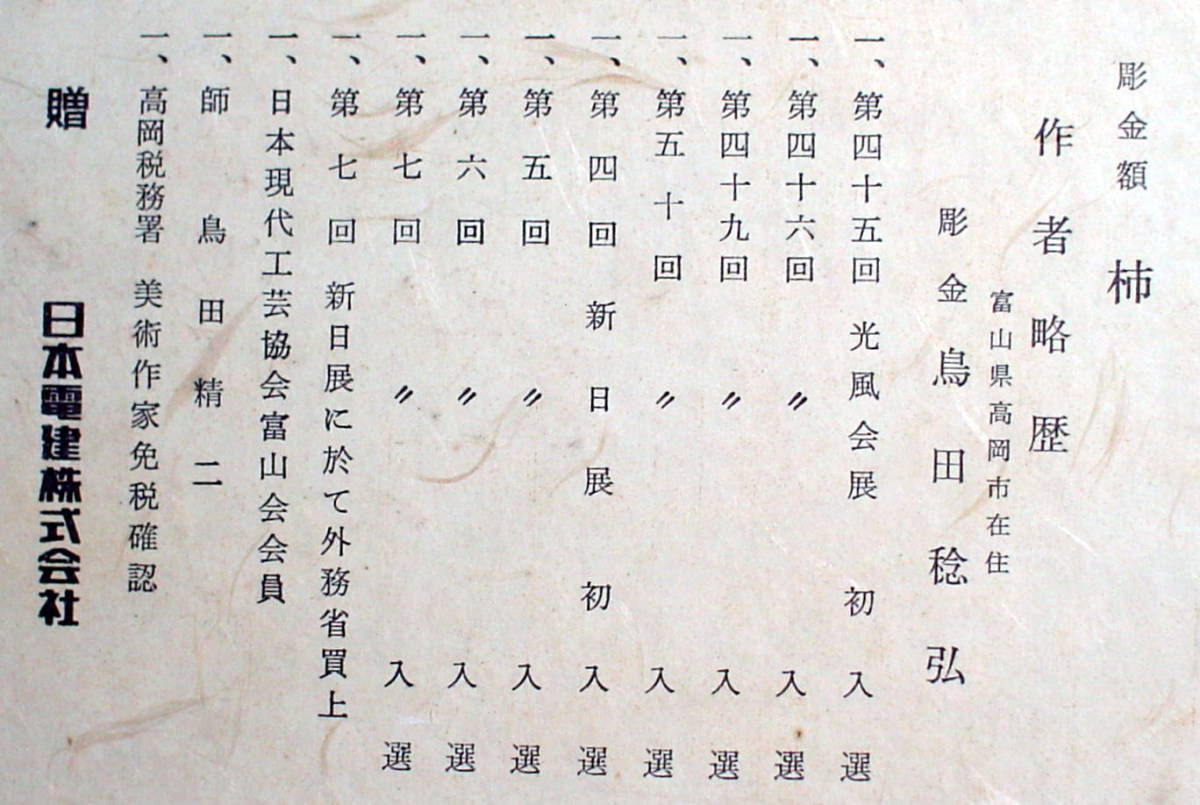 彫金額 柿
作者略歴
富山県高岡市在住
彫金 鳥田稔弘
一、第四十五回 光風会展 初入選
一、第四十六回 〃 入選
一、第四十九回 〃 入選
一、第五十回 〃 入選
一、第四回新日展初入選
一、第五回 〃 入選
一、第六回 〃 入選
一、第七回 〃 入選
一、第七回新日展に於て外務省買上
一、日本現代工芸協会富山会会員
一、師 鳥田精二
一、高岡税務署 美術作家免税確認
贈 日本電建株式会社